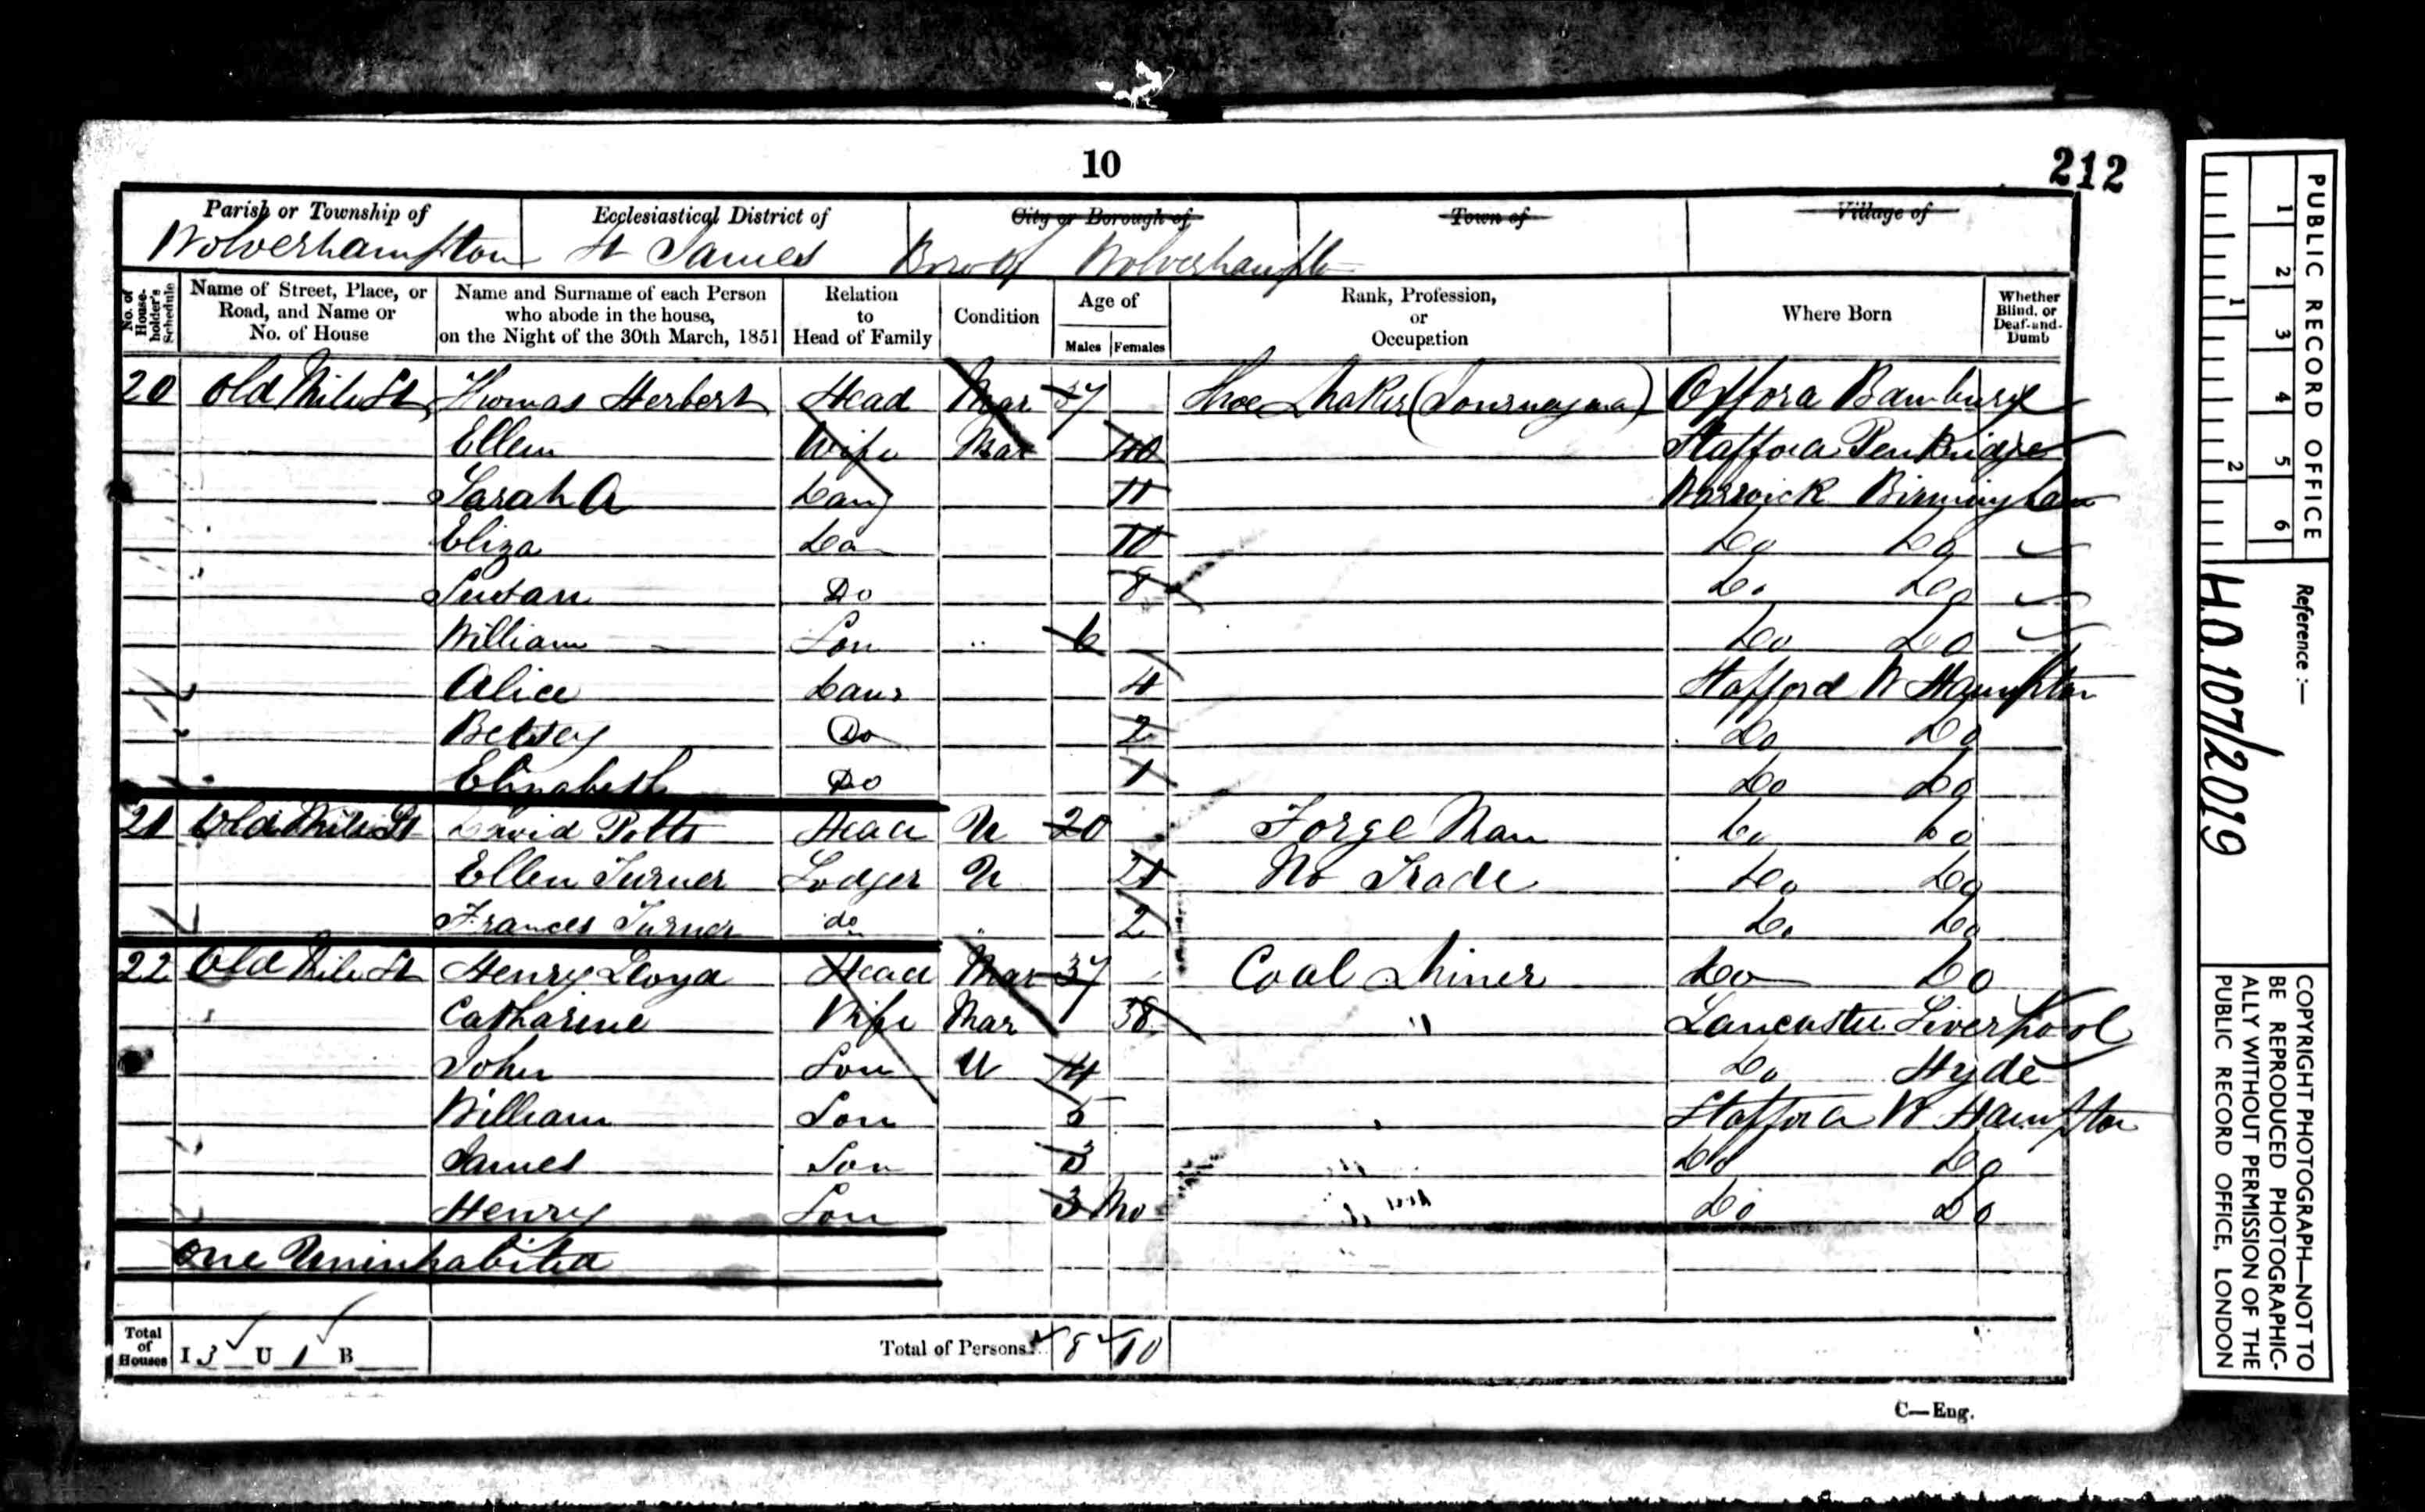 10
212
Parish or Township of
Ecclesiastical District of
City or Borough of
Town of
Village of
Wolverhampton
St James
Boro of Wolverhampton
No. of House-holder's Schedule
Name of Street, Place, or Road, and Name or No. of House
Name and Surname of each Person who abode in the house, on the Night of the 30th March, 1851
Relation to Head of Family
Condition
Age of
Males
Females
Rank, Profession, or Occupation
Where Born
Whether Blind, or Deaf-and-Dumb
20 Old Mill St Thomas Herbert Head Mar 37 Shoe Maker (Journeyman) Oxford Bambury
Ellen Wife Mar 40 Stafford Penkridge
Sarah A Daug 11 Warwick Birmingham
Eliza Do 10 Do Do
Susan Do 8 Do Do
William Son 6 Do Do
Alice Daur 4 Stafford W Hampton
Betsey Do 2 Do Do
Elizabeth Do 1 Do Do
21 Old Mill St David Potts Head U 20 Forge Man Do Do
Ellen Turner Lodger U 21 No Trade Do Do
Frances Turner do 2 Do Do
22 Old Mill St Henry Lloyd Head Mar 37 Coal Miner Do Do
Catharine Wife Mar 38 " Lancaster Liverpool
John Son U 14 Do Hyde
William Son 5 Stafford W Hampton
James Son 3 Do Do
Henry Son 3 Mo Do Do
One Uninhabited
Total of Houses I 3 U 1 B
Total of Persons 8 10
C—Eng.
PUBLIC RECORD OFFICE
1 2 3 4 5 6
1 2
Reference:—
H.O. 107/2019
COPYRIGHT PHOTOGRAPH—NOT TO
BE REPRODUCED PHOTOGRAPHIC-
ALLY WITHOUT PERMISSION OF THE
PUBLIC RECORD OFFICE, LONDON